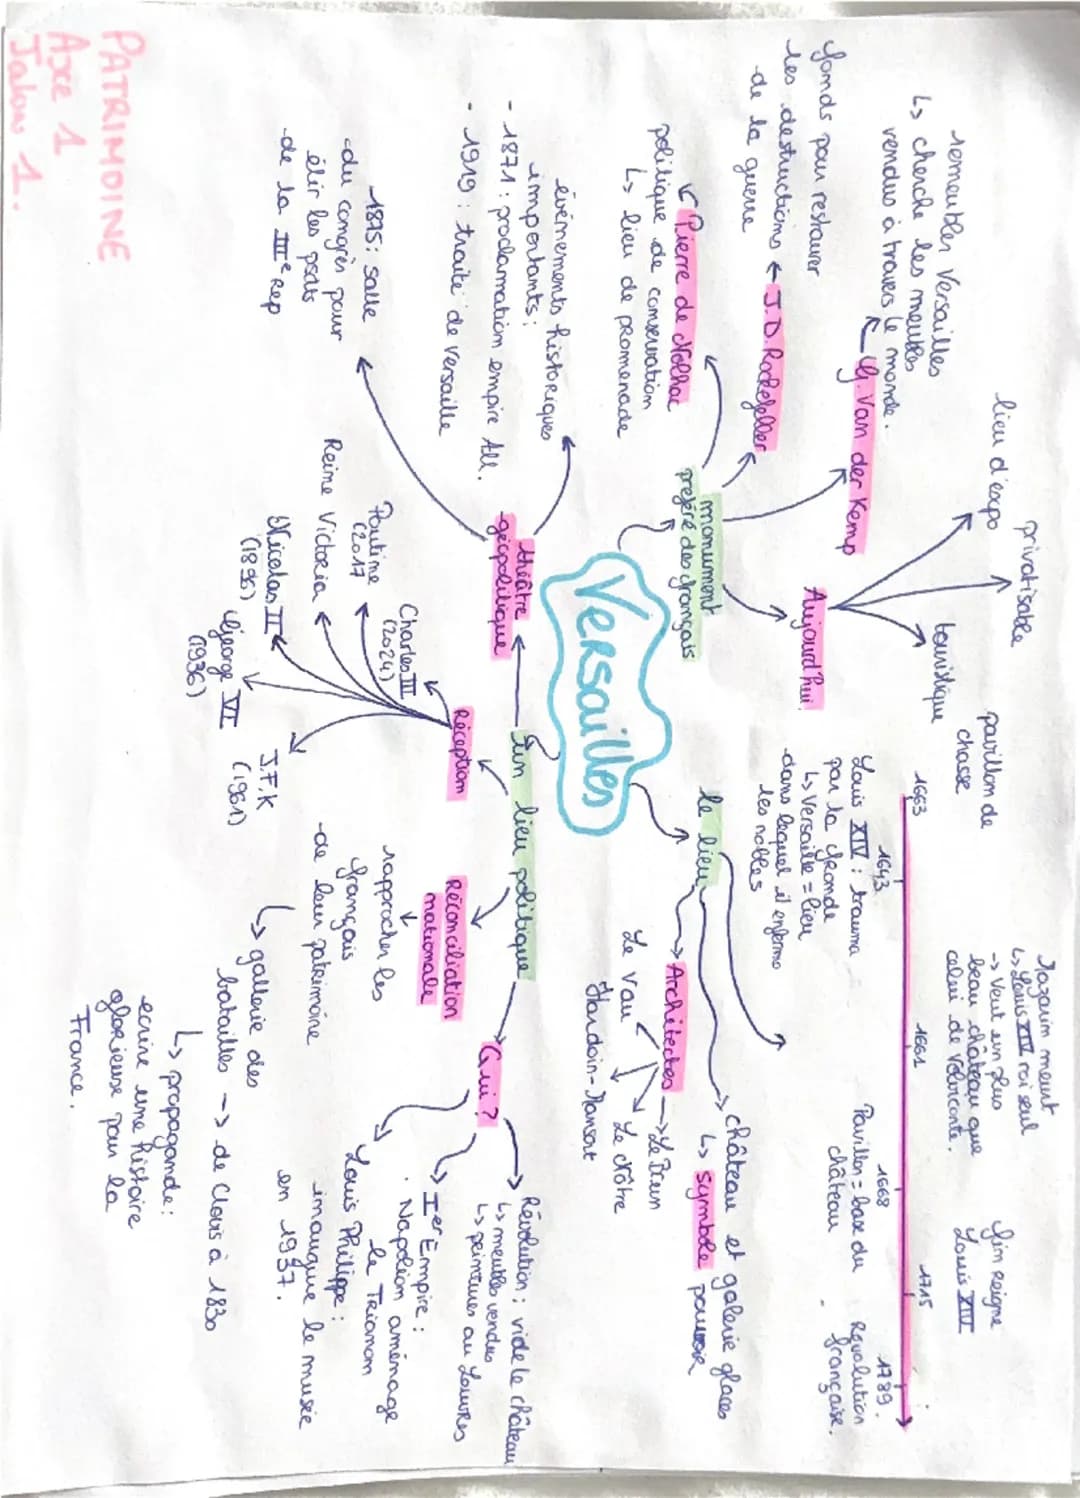 PATRIMOINE
Axe 1
Jalon 1.
Versailles
monument
préféré des français
Pierre de Nolhac
politique de conservation
↳ lieu de promenade
J.D. Rockefeller
fonds pour restaurer
les destructions
de la guerre
G. Van der Kemp
remeubles Versailles
↳ cherche les meubles
vendus à travers le monde.
Aujourd'hui
lieu d'expo
privatisable
touristique
pavillon de
chasse
1663
1643
Louis XIV : trauma
par la fronde
↳ Versaille = lieu
dans lequel il enferme
les nobles
Mazarin meurt
↳ Louis XIV roi seul
-> Veut un plus
beau château que
celui de
1661
1668
Pavillon = base du
château
fin reigne
Louis XIV
1715
1789.
Révolution
française.
le lieu
château et galerie glaces
↳ symbole pouvoir
Architectes
Le Brun
Le Nôtre
Le Vau
Hardoin-Mansart
un lieu politique
théâtre
géopolitique
événements historiques
importants :
- 1871 : proclamation empire All.
- 1919 : traité de Versaille
-1875 : salle
du congrès pour
élir les psdts
de la IIIe Rep
Réception
Charles III
(2024)
Poutine
(2017
Reine Victoria
Nicolas II
George VI
(1936)
J.F.K
(1961)
Réconciliation
nationale
↓
rapprocher les
français
de leur patrimoine
↳ gallerie des
batailles -> de Clovis à 1830
↳ propagande :
ecrire une histoire
glorieuse pour la
France.
Qui ?
Révolution ; vide le château
↳ meubles vendus
↳ peintures au Louvres
Ier Empire :
. Napoléon aménage
le Trianon
Louis Philippe :
inaugure le musée
en 1937.